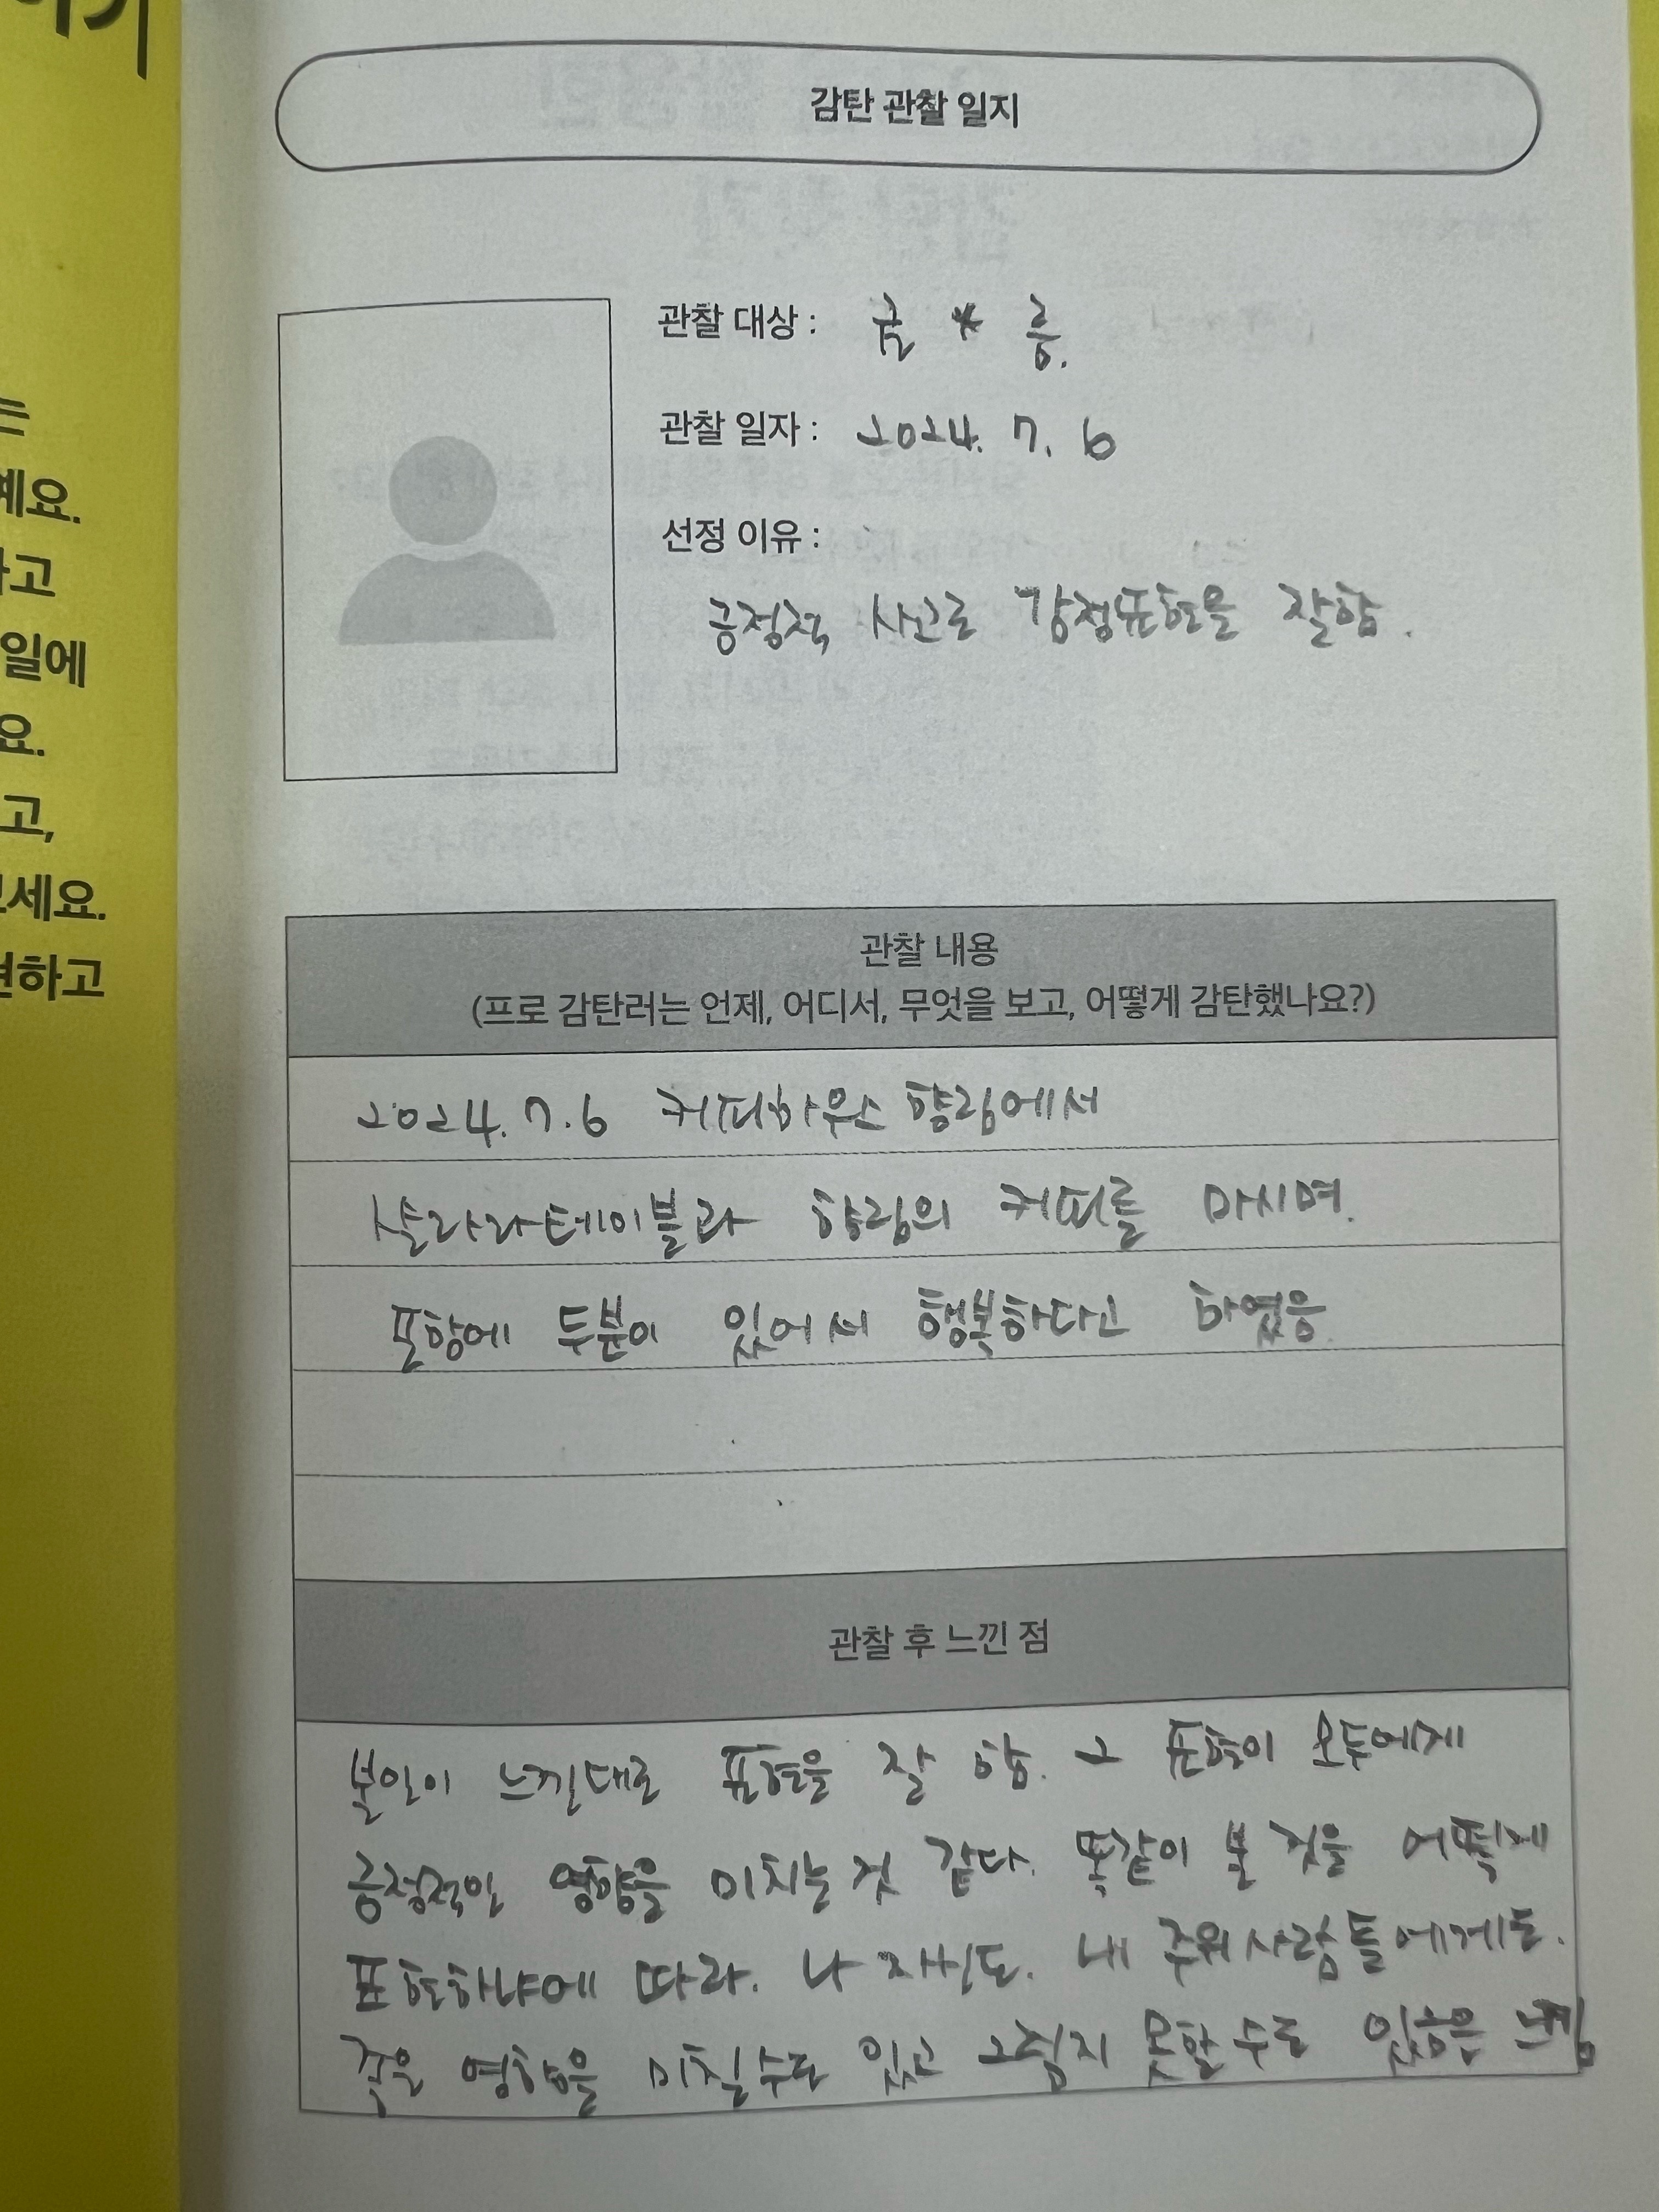 감탄 관찰 일지
관찰 대상 : 금 * 릉.
관찰 일자 : 2024. 7. 6
선정 이유 :
긍정적 사고로 감정표현을 잘함.
관찰 내용
(프로 감탄러는 언제, 어디서, 무엇을 보고, 어떻게 감탄했나요?)
2024. 7. 6 커피하우스 향림에서
샬라라테이블과 향림의 커피를 마시며.
포항에 두분이 있어서 행복하다고 하였음.
관찰 후 느낀 점
본인이 느낀대로 표현을 잘 함. 그 표현이 모두에게
긍정적인 영향을 미치는 것 같다. 똑같이 본 것을 어떻게
표현하냐에 따라. 나 자신도. 내 주위 사람들에게도.
좋은 영향을 미칠수도 있고 그렇지 못할 수도 있음은 느낌
예요.
고
일에
요.
고,
세요.
하고